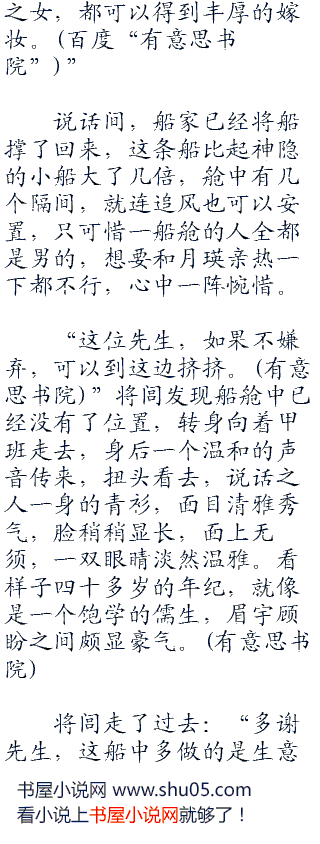 之女，都可以得到丰厚的嫁
妆。(百度“有意思书
院”)”
说话间，船家已经将船
撑了回来，这条船比起神隐
的小船大了几倍，舱中有几
个隔间，就连追风也可以安
置，只可惜一船舱的人全都
是男的，想要和月瑛亲热一
下都不行，心中一阵惋惜。
“这位先生，如果不嫌
弃，可以到这边挤挤。(有意
思书院)”将闾发现船舱中已
经没有了位置，转身向着甲
班走去，身后一个温和的声
音传来，扭头看去，说话之
人一身的青衫，面目清雅秀
气，脸稍稍显长，面上无
须，一双眼睛淡然温雅。看
样子四十多岁的年纪，就像
是一个饱学的儒生，眉宇顾
盼之间颇显豪气。(有意思书
院)
将闾走了过去：“多谢
先生，这船中多做的是生意
书屋小说网 www.shu05.com
看小说上书屋小说网就够了！